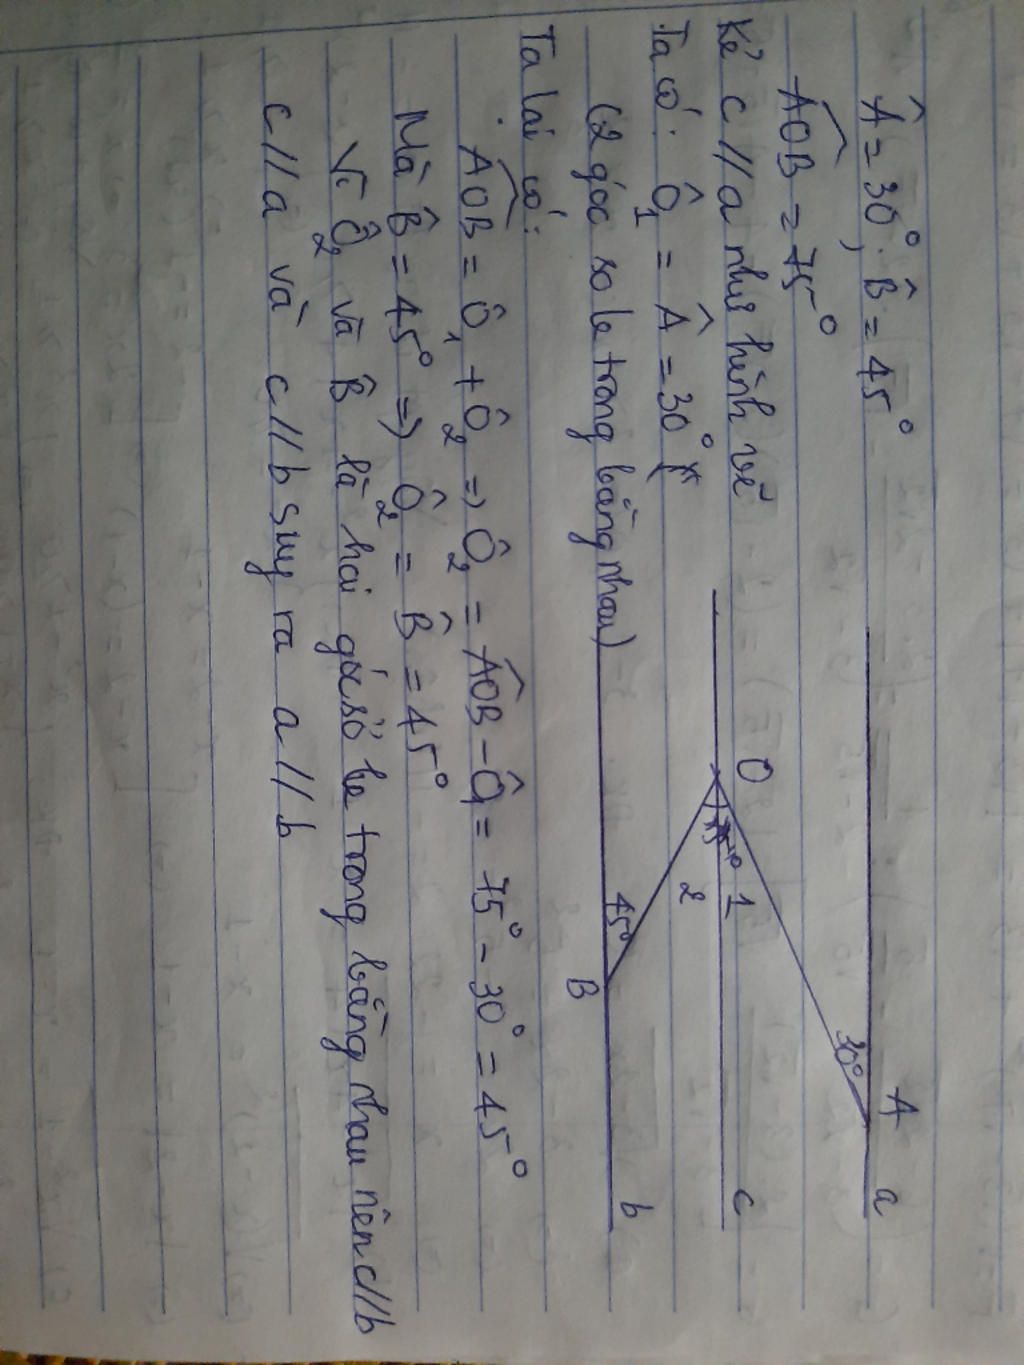 Â = 30°, B̂ = 45°
AOB = 75°
Kẻ c // a như hình vẽ
Ta có: Ô1 = Â = 30°
(2 góc so le trong bằng nhau)
Ta lại có:
AOB = Ô1 + Ô2 => Ô2 = AOB - Ô1 = 75° - 30° = 45°
Mà B̂ = 45° => Ô2 = B̂ = 45°
Vì Ô2 và B̂ là hai góc so le trong bằng nhau nên c//b
c//a và c//b suy ra a//b
A
a
30°
O
1
75°
c
2
45°
b
B